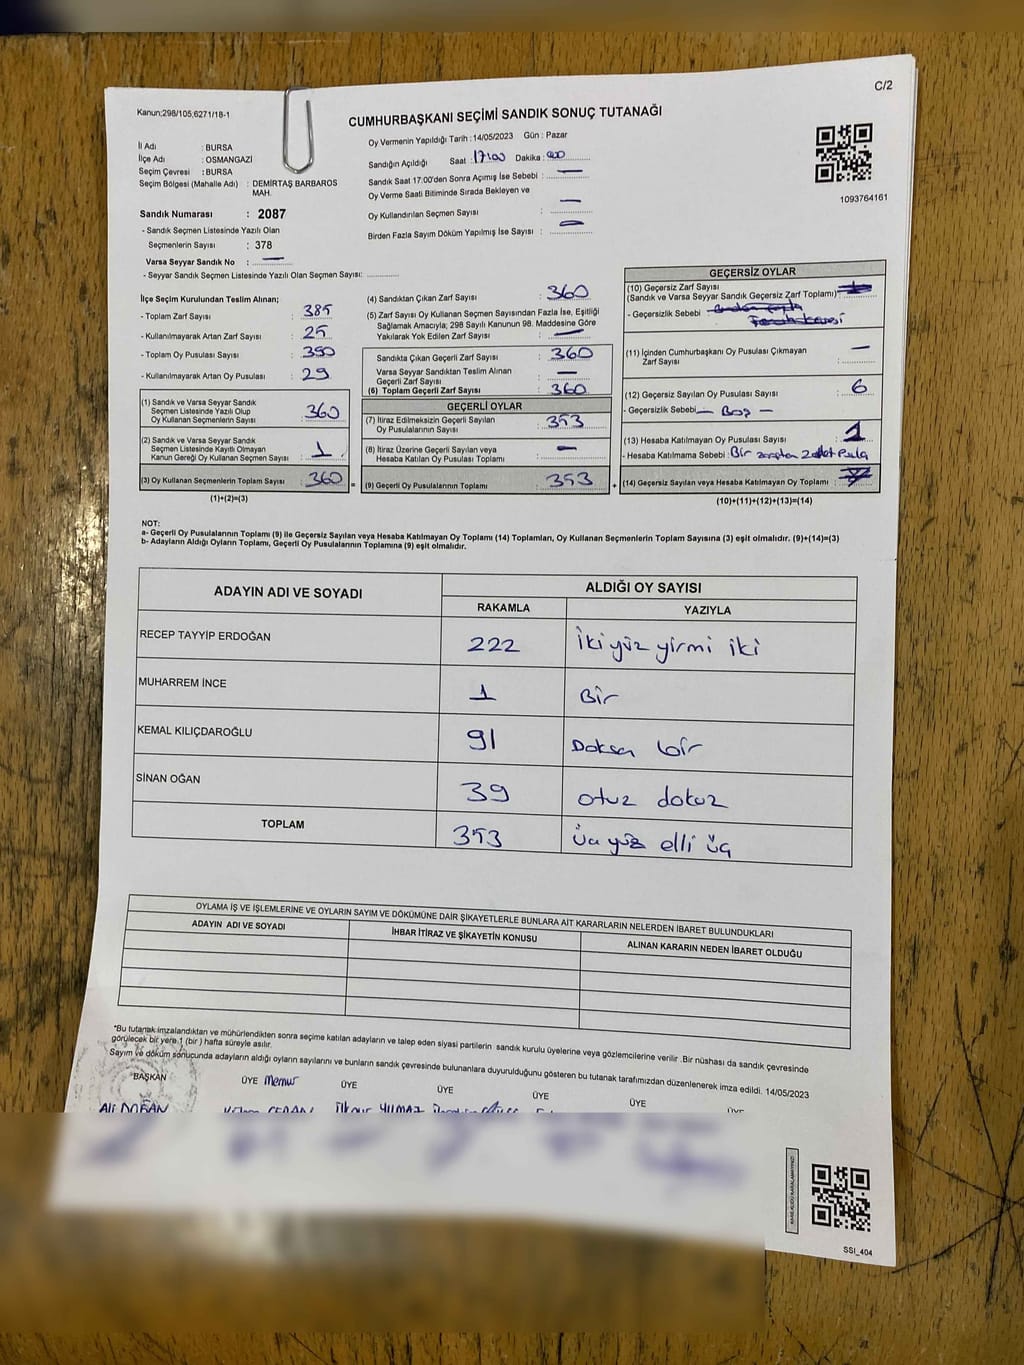 C/2
Kanun;298/105;6271/18-1
CUMHURBAŞKANI SEÇİMİ SANDIK SONUÇ TUTANAĞI
İl Adı : BURSA
İlçe Adı : OSMANGAZİ
Seçim Çevresi : BURSA
Seçim Bölgesi (Mahalle Adı) : DEMİRTAŞ BARBAROS MAH.
Sandık Numarası : 2087
- Sandık Seçmen Listesinde Yazılı Olan
Seçmenlerin Sayısı : 378
Varsa Seyyar Sandık No : —
- Seyyar Sandık Seçmen Listesinde Yazılı Olan Seçmen Sayısı:
Oy Vermenin Yapıldığı Tarih : 14/05/2023 Gün : Pazar
Sandığın Açıldığı Saat : 17:00 Dakika : 00
Sandık Saat 17:00'den Sonra Açımış İse Sebebi : —
Oy Verme Saati Bitiminde Sırada Bekleyen ve
Oy Kullandırılan Seçmen Sayısı : —
Birden Fazla Sayım Döküm Yapılmış İse Sayısı :
1093764161
İlçe Seçim Kurulundan Teslim Alınan;
- Toplam Zarf Sayısı : 385
- Kullanılmayarak Artan Zarf Sayısı : 25
- Toplam Oy Pusulası Sayısı : 390
- Kullanılmayarak Artan Oy Pusulası : 29
(1) Sandık ve Varsa Seyyar Sandık
Seçmen Listesinde Yazılı Olup
Oy Kullanan Seçmenlerin Sayısı : 360
(2) Sandık ve Varsa Seyyar Sandık
Seçmen Listesinde Kayıtlı Olmayan
Kanun Gereği Oy Kullanan Seçmen Sayısı : 1
(3) Oy Kullanan Seçmenlerin Toplam Sayısı : 360
(1)+(2)=(3)
(4) Sandıktan Çıkan Zarf Sayısı : 360
(5) Zarf Sayısı Oy Kullanan Seçmen Sayısından Fazla İse, Eşitliği
Sağlamak Amacıyla; 298 Sayılı Kanunun 98. Maddesine Göre
Yakılarak Yok Edilen Zarf Sayısı : —
Sandıkta Çıkan Geçerli Zarf Sayısı : 360
Varsa Seyyar Sandıktan Teslim Alınan
Geçerli Zarf Sayısı : —
(6) Toplam Geçerli Zarf Sayısı : 360
GEÇERLİ OYLAR
(7) İtiraz Edilmeksizin Geçerli Sayılan
Oy Pusulalarının Sayısı : 353
(8) İtiraz Üzerine Geçerli Sayılan veya
Hesaba Katılan Oy Pusulası Toplamı : —
(9) Geçerli Oy Pusulalarının Toplamı : 353
GEÇERSİZ OYLAR
(10) Geçersiz Zarf Sayısı
(Sandık ve Varsa Seyyar Sandık Geçersiz Zarf Toplamı) :
- Geçersizlik Sebebi :
(11) İçinden Cumhurbaşkanı Oy Pusulası Çıkmayan
Zarf Sayısı : —
(12) Geçersiz Sayılan Oy Pusulası Sayısı : 6
- Geçersizlik Sebebi — Boş —
(13) Hesaba Katılmayan Oy Pusulası Sayısı : 1
- Hesaba Katılmama Sebebi : Bir zarftan 2 adet Pusla
(14) Geçersiz Sayılan veya Hesaba Katılmayan Oy Toplamı : 7
(10)+(11)+(12)+(13)=(14)
NOT:
a- Geçerli Oy Pusulalarının Toplamı (9) ile Geçersiz Sayılan veya Hesaba Katılmayan Oy Toplamı (14) Toplamları, Oy Kullanan Seçmenlerin Toplam Sayısına (3) eşit olmalıdır. (9)+(14)=(3)
b- Adayların Aldığı Oyların Toplamı, Geçerli Oy Pusulalarının Toplamına (9) eşit olmalıdır.
ADAYIN ADI VE SOYADI ALDIĞI OY SAYISI
RAKAMLA YAZIYLA
RECEP TAYYİP ERDOĞAN 222 İki yüz yirmi iki
MUHARREM İNCE 1 Bir
KEMAL KILIÇDAROĞLU 91 Doksan bir
SİNAN OĞAN 39 otuz dokuz
TOPLAM 353 üç yüz elli üç
OYLAMA İŞ VE İŞLEMLERİNE VE OYLARIN SAYIM VE DÖKÜMÜNE DAİR ŞİKAYETLERLE BUNLARA AİT KARARLARIN NELERDEN İBARET BULUNDUKLARI
ADAYIN ADI VE SOYADI İHBAR İTİRAZ VE ŞİKAYETİN KONUSU ALINAN KARARIN NEDEN İBARET OLDUĞU
*Bu tutanak imzalandıktan ve mühürlendikten sonra seçime katılan adayların ve talep eden siyasi partilerin sandık kurulu üyelerine veya gözlemcilerine verilir .Bir nüshası da sandık çevresinde
görülecek bir yere 1 (bir ) hafta süreyle asılır.
Sayım ve döküm sonucunda adayların aldığı oyların sayılarını ve bunların sandık çevresinde bulunanlara duyurulduğunu gösteren bu tutanak tarafımızdan düzenlenerek imza edildi. 14/05/2023
BAŞKAN ÜYE Memur ÜYE ÜYE ÜYE ÜYE ÜYE
Ali DOĞAN İlknur YILMAZ
SSI_404